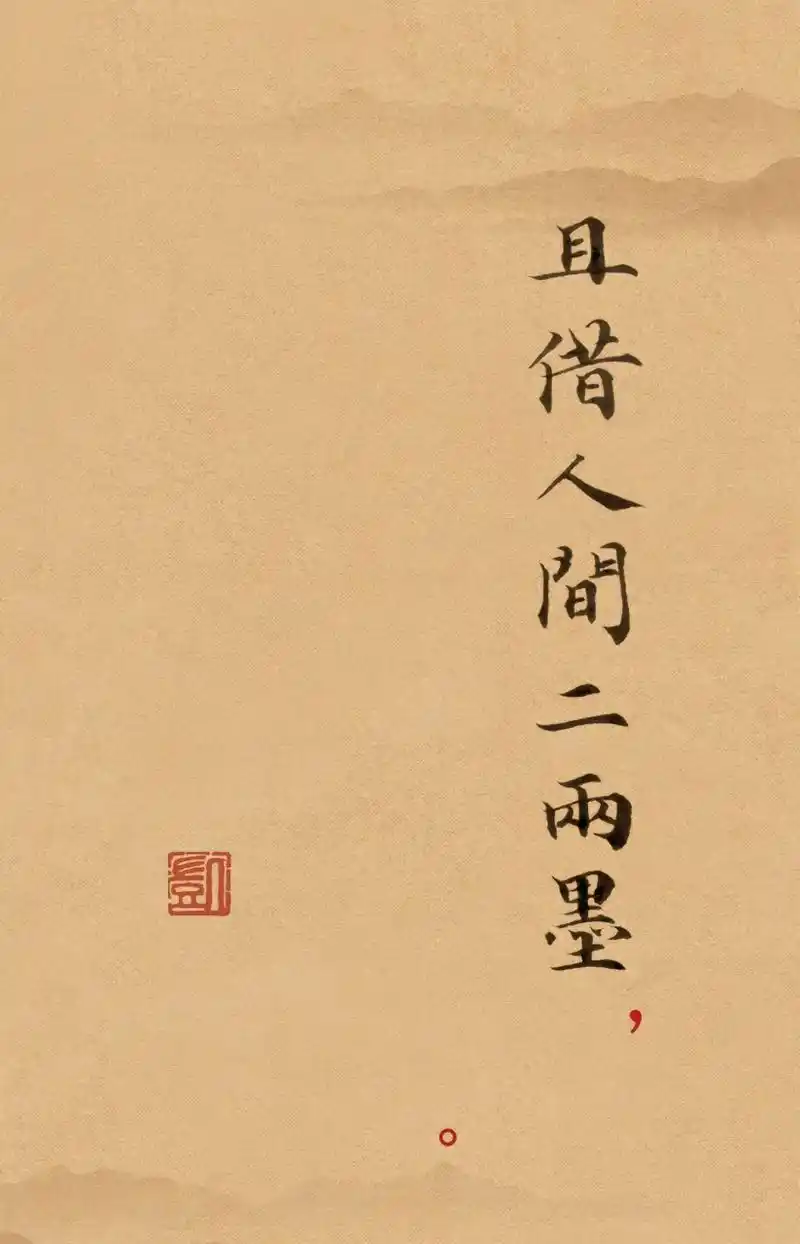 且借人間二兩墨，
。
凱